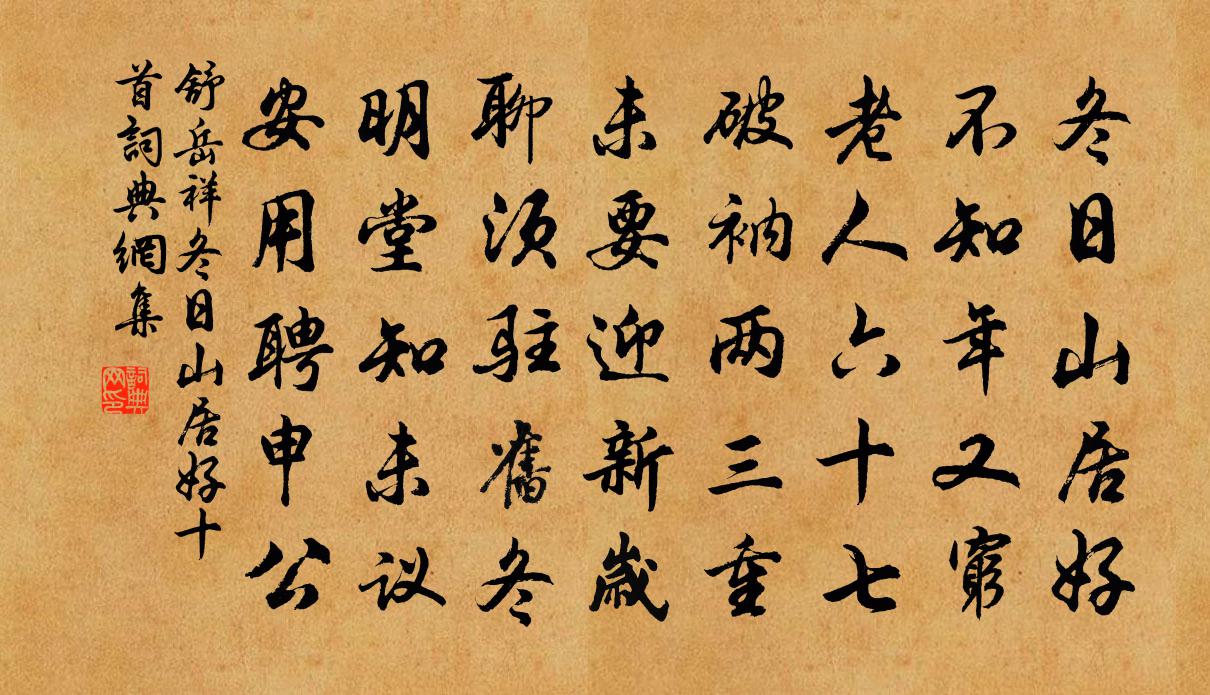 冬日山居好
不知年又窮
老人六十七
破衲两三重
未要迎新歲
聊須駐舊冬
明堂知未议
安用聘申公
舒岳祥冬日山居好十
首詞典網集
詞典
网印